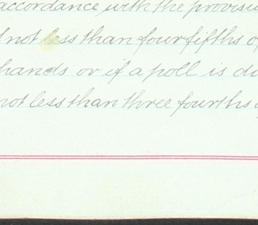 accordance with the provisi
not less than four fifths of
hands or if a poll is d
not less than three fourths